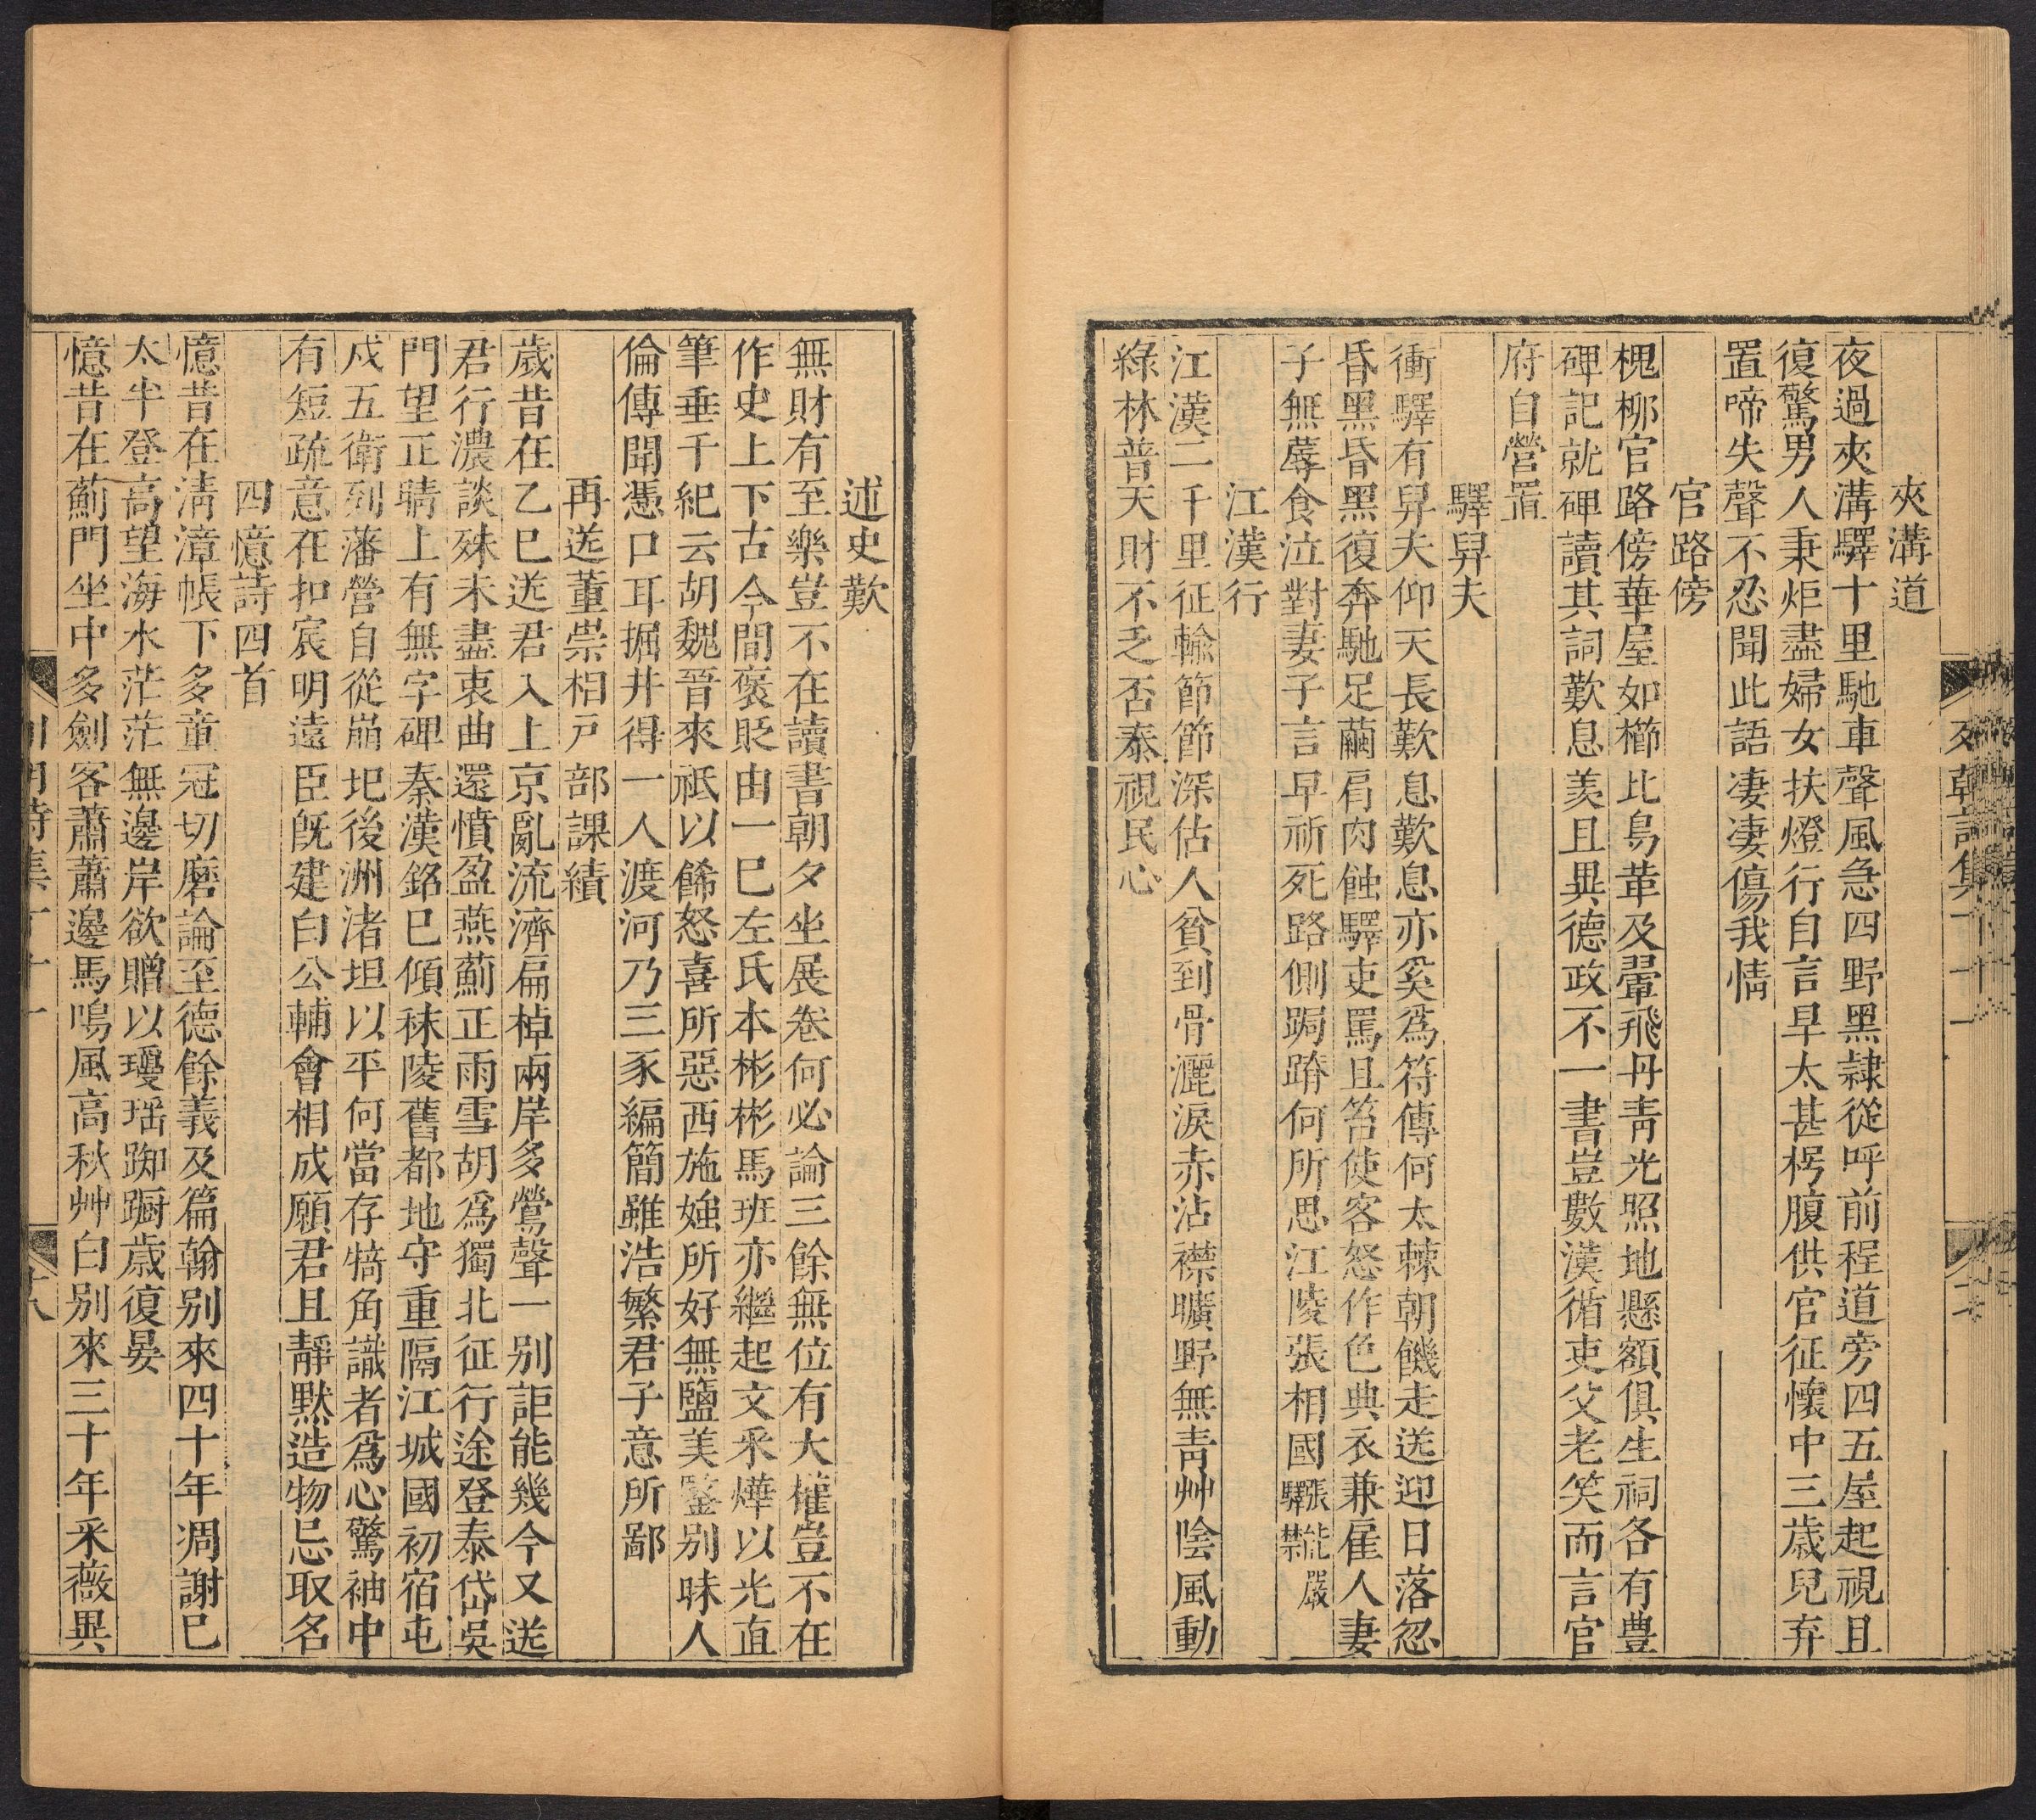 夾溝道
夜過夾溝驛十里馳車聲風急四野黑隸從呼前程道旁四五屋起視且
復驚男人秉炬盡婦女扶燈行自言早太甚枵腹供官征懷中三歲兒弃
置啼失聲不忍聞此語凄凄傷我情
官路傍
槐柳官路傍華屋如櫛比鳥革及翬飛丹靑光照地懸額俱生祠各有豊
碑記就碑讀其詞歎息羨且異德政不一書豈數漢循吏父老笑而言官
府自營置
驛舁夫
衝驛有舁夫仰天長歎息歎息亦奚爲符傳何太棘朝饑走送迎日落忽
昏黑昏黑復奔馳足繭肩肉蝕驛吏罵且笞使客怒作色典衣兼雇人妻
子無蓐食泣對妻子言早祈死路側跼蹐何所思江陵張相國張能嚴驛禁
江漢行
江漢二千里征輸節節深估人貧到骨灑淚赤沾襟曠野無靑艸陰風動
綠林普天財不乏否泰視民心
述史歎
無財有至樂豈不在讀書朝夕坐展卷何必論三餘無位有大權豈不在
作史上下古今間褒貶由一巳左氏本彬彬馬班亦繼起文采燁以光直
筆垂千紀云胡魏晉來祇以餙怒喜所惡西施媸所好無鹽美鑒别昧人
倫傳聞憑口耳掘井得一人渡河乃三豕編簡雖浩繁君子意所鄙
再送董崇相戸部課績
歲昔在乙巳送君入上京亂流濟扁棹兩岸多鶯聲一别詎能幾今又送
君行濃談殊未盡衷曲還憤盈燕薊正雨雪胡爲獨北征行途登泰岱吳
門望正晴上有無字碑秦漢銘巳傾秣陵舊都地守重隔江城國初宿屯
戍五衛列藩營自從崩圯後洲渚坦以平何當存犄角識者爲心驚袖中
有短疏意在扣宸明遠臣旣建白公輔會相成願君且靜默造物忌取名
四憶詩四首
憶昔在淸漳帳下多童冠切磨論至德餘義及篇翰别來四十年凋謝巳
太半登高望海水茫茫無邊岸欲贈以瓊瑶踟蹰歲復晏
憶昔在薊門坐中多劍客蕭蕭邊馬鳴風高秋艸白别來三十年采薇異